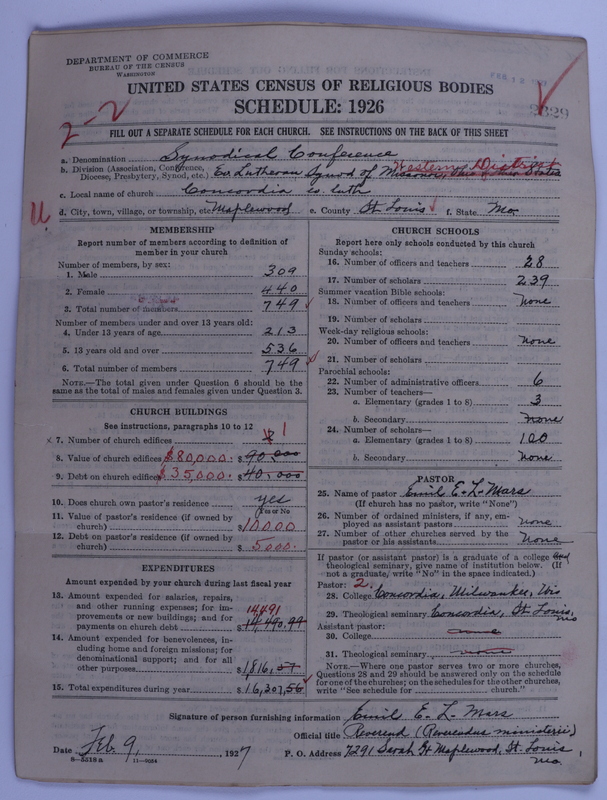 DEPARTMENT OF COMMERCE
BUREAU OF THE CENSUS
WASHINGTON
UNITED STATES CENSUS OF RELIGIOUS BODIES
SCHEDULE: 1926
2-2
FILL OUT A SEPARATE SCHEDULE FOR EACH CHURCH. SEE INSTRUCTIONS ON THE BACK OF THIS SHEET
a. Denomination Synodical Conference
b. Division (Association, Conference, Diocese, Presbytery, Synod, etc.) Ev. Lutheran Synod of Missouri, Ohio & other States Western District
c. Local name of church Concordia ev. luth
d. City, town, village, or township, etc. Maplewood e. County St. Louis f. State Mo.
MEMBERSHIP
Report number of members according to definition of
member in your church
Number of members, by sex:
1. Male 309
2. Female 440
3. Total number of members 749
Number of members under and over 13 years old:
4. Under 13 years of age 213
5. 13 years old and over 536
6. Total number of members 749
NOTE.—The total given under Question 6 should be
same as the total of males and females given under Question 3.
CHURCH BUILDINGS
See instructions, paragraphs 10 to 12
x 7. Number of church edifices 1
8. Value of church edifices $80,000. $ 90,000
9. Debt on church edifices $35,000. $ 40,000
10. Does church own pastor's residence yes
Yes or No
11. Value of pastor's residence (if owned by
church) $ 10000
12. Debt on pastor's residence (if owned by
church) $ 5000.
EXPENDITURES
Amount expended by your church during last fiscal year
13. Amount expended for salaries, repairs,
and other running expenses; for im-
provements or new buildings; and for 14491
payments on church debt $ 14,490.99
14. Amount expended for benevolences, in-
cluding home and foreign missions; for
denominational support; and for all
other purposes $ 1,816.57
15. Total expenditures during year $ 16,307.56
CHURCH SCHOOLS
Report here only schools conducted by this church
Sunday schools:
16. Number of officers and teachers 28
17. Number of scholars 239
Summer vacation Bible schools:
18. Number of officers and teachers none
19. Number of scholars
Week-day religious schools:
20. Number of officers and teachers none
21. Number of scholars
Parochial schools:
22. Number of administrative officers 6
23. Number of teachers—
a. Elementary (grades 1 to 8) 3
b. Secondary none
24. Number of scholars—
a. Elementary (grades 1 to 8) 100
b. Secondary none
PASTOR
25. Name of pastor Emil E. L. Mars
(If church has no pastor, write "None")
26. Number of ordained ministers, if any, em-
ployed as assistant pastors none
27. Number of other churches served by the
pastor or his assistants none
If pastor (or assistant pastor) is a graduate of a college and
theological seminary, give name of institution below. (If
not a graduate, write "No" in the space indicated.)
Pastor: 2.
28. College Concordia, Milwaukee, Wis
29. Theological seminary Concordia, St. Louis, Mo
Assistant pastor:
30. College none
31. Theological seminary none
NOTE.—Where one pastor serves two or more churches,
Questions 28 and 29 should be answered only on the schedule
for one of the churches; on the schedules for the other churches,
write "See schedule for church."
Signature of person furnishing information Emil E. L. Mars
Official title Reverend (Reverendus ministerii)
Date Feb. 9, 1927 P. O. Address 7291 Sarah St Maplewood, St. Louis Mo.
11—9054